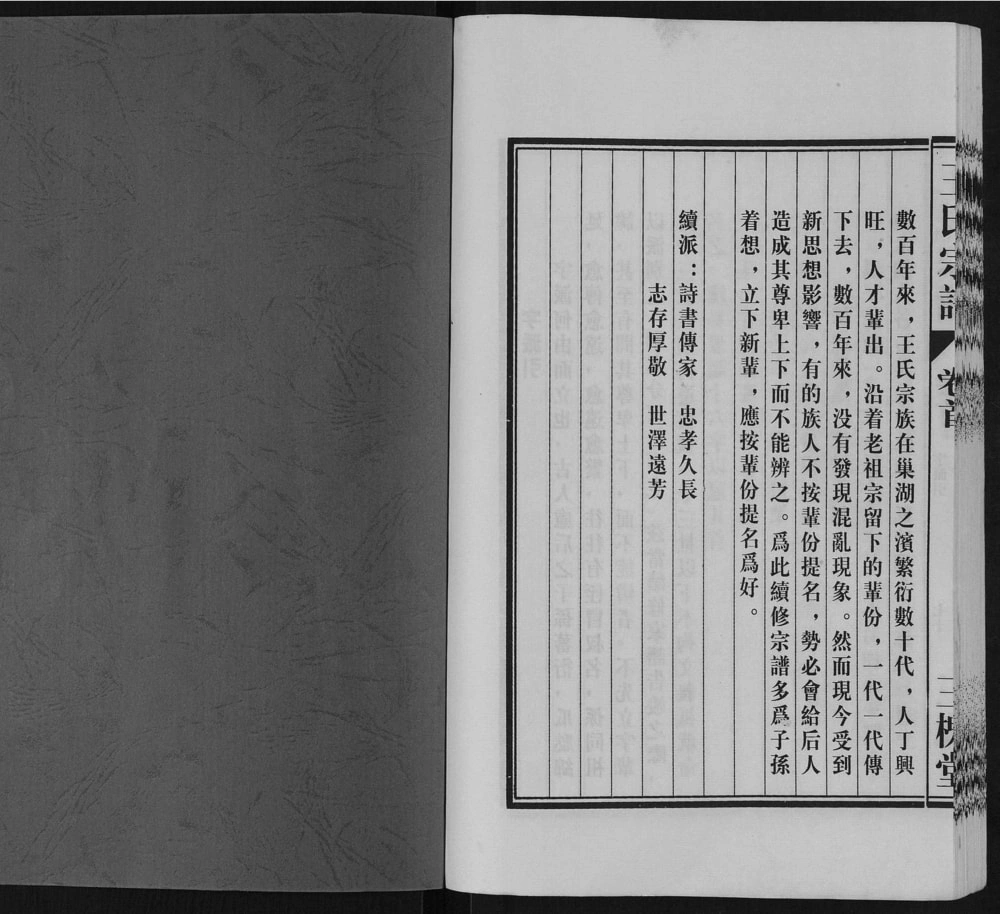 王氏宗譜
卷首
三槐堂
數百年來，王氏宗族在巢湖之濱繁衍數十代，人丁興
旺，人才輩出。沿着老祖宗留下的輩份，一代一代傳
下去，數百年來，没有發現混亂現象。然而現今受到
新思想影響，有的族人不按輩份提名，勢必會給后人
造成其尊卑上下而不能辨之。爲此續修宗譜多爲子孫
着想，立下新輩，應按輩份提名爲好。
續派：詩書傳家　忠孝久長
志存厚敬　世澤遠芳